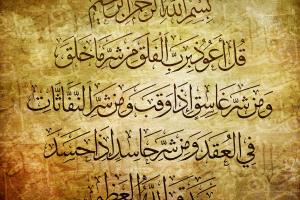 بسم الله الرحمن الرحيم
قل أعوذ برب الفلق من شر ما خلق
ومن شر غاسق إذا وقب ومن شر النفاثات
في العقد ومن شر حاسد إذا حسد
صدق الله العظيم